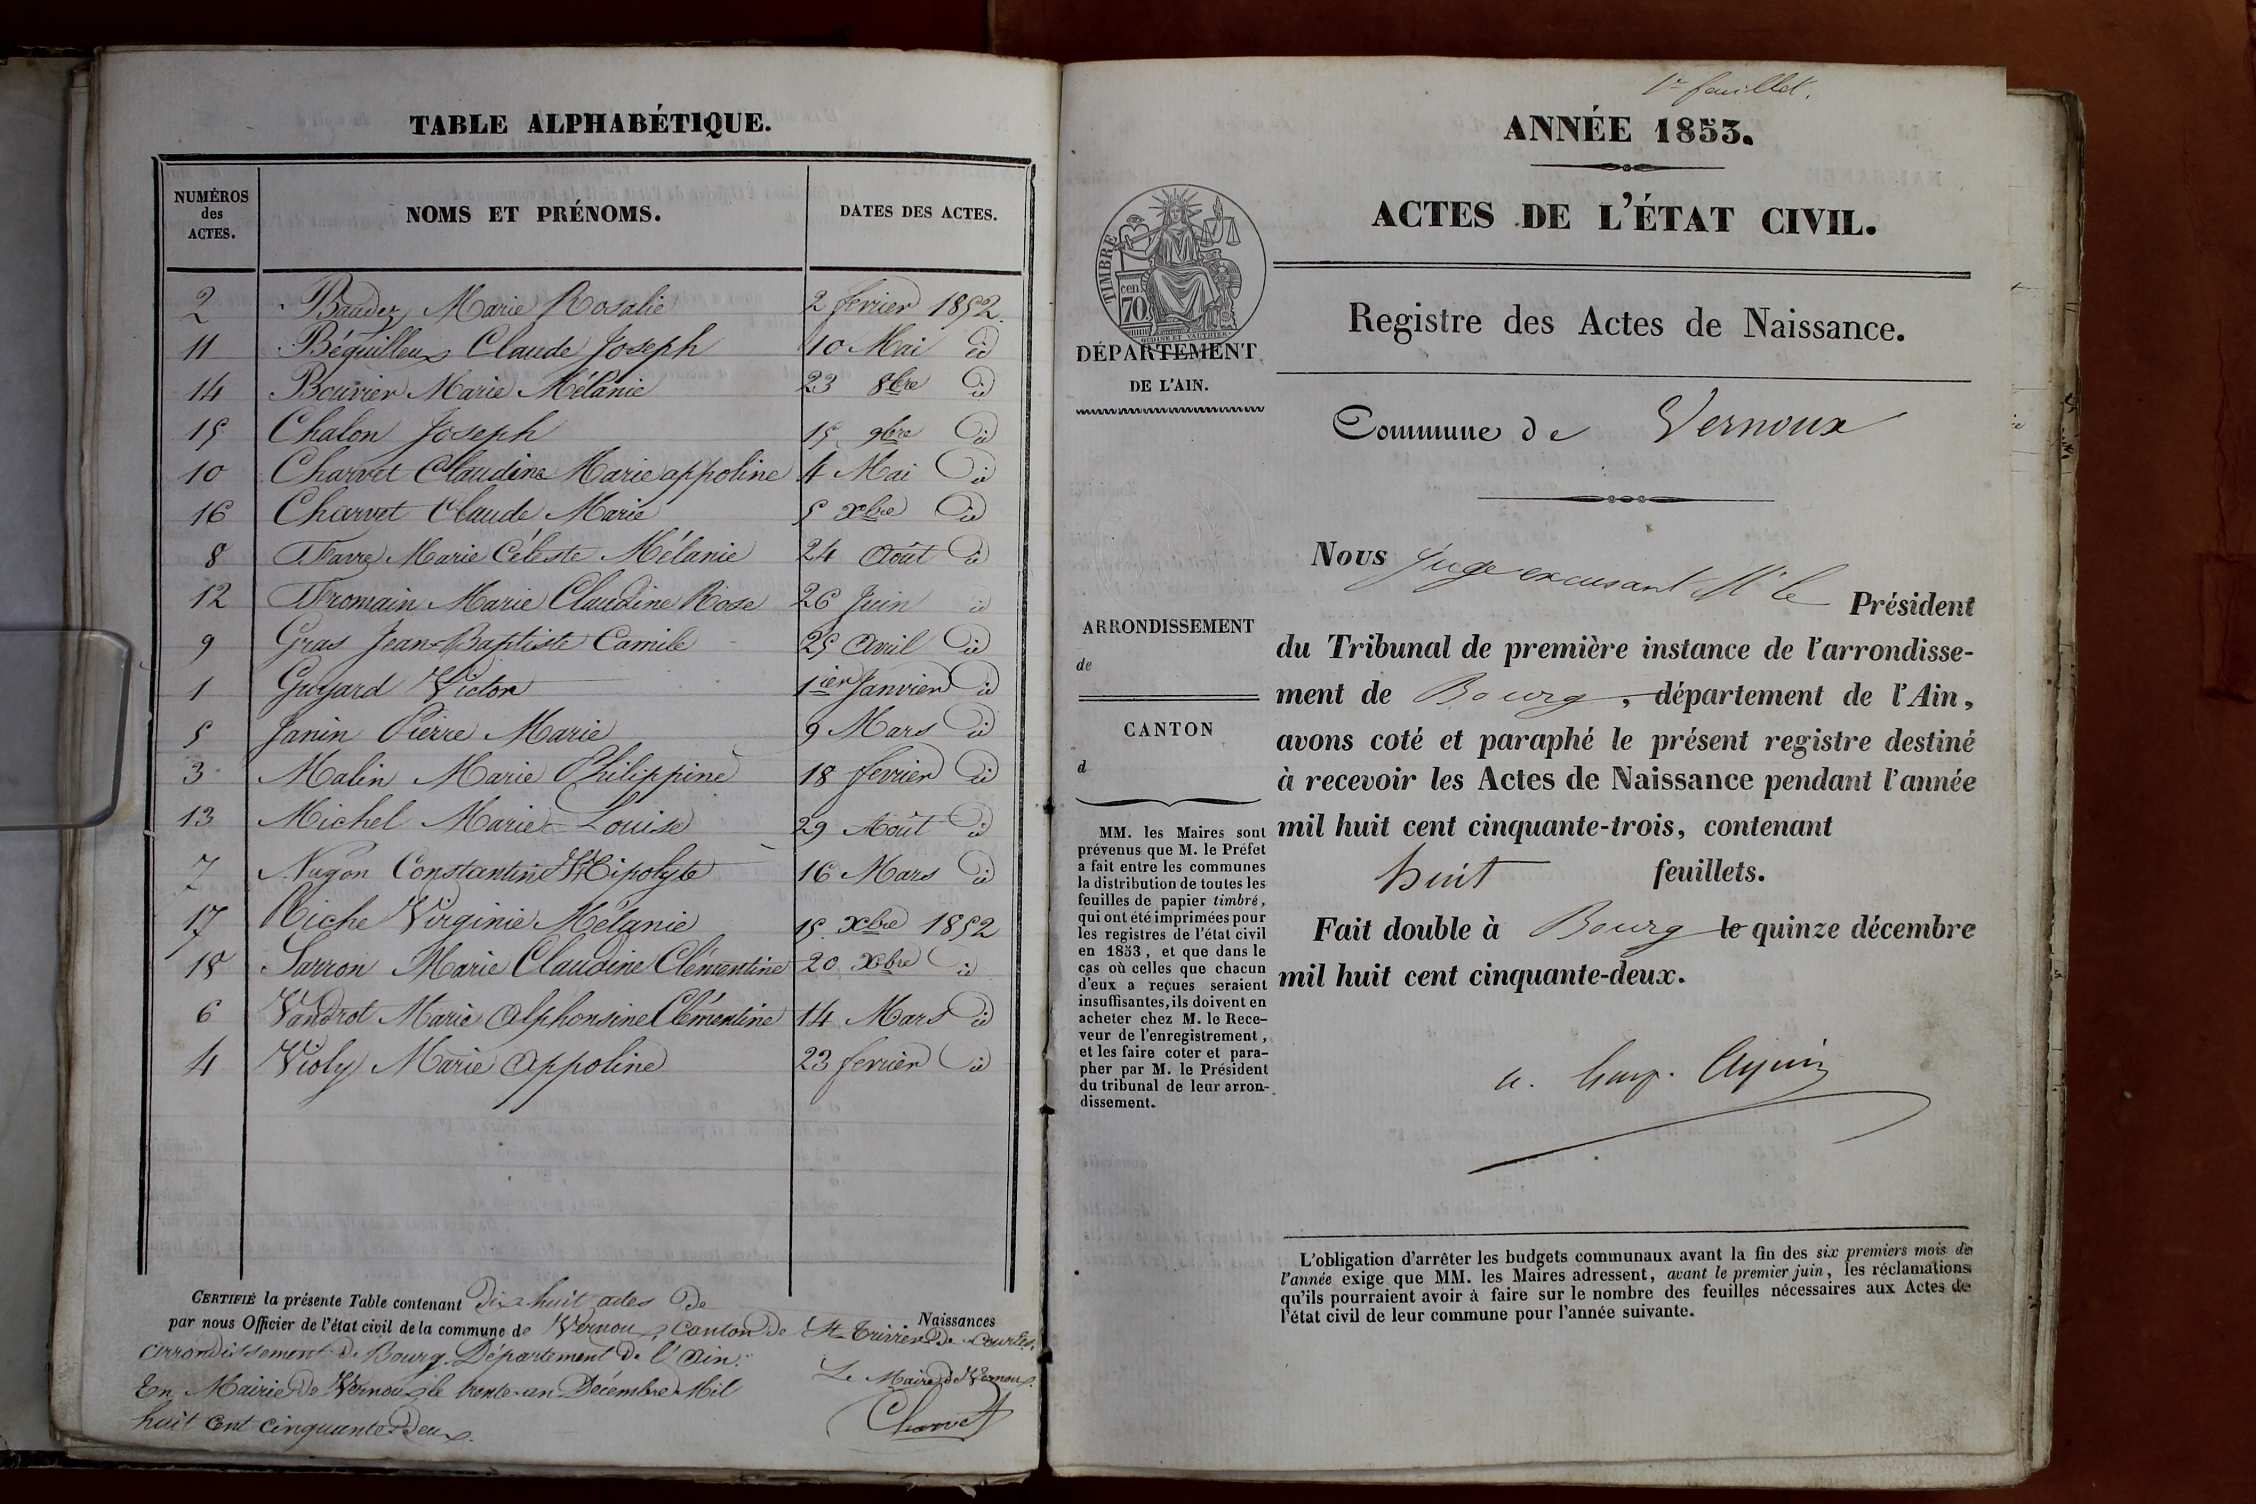 TABLE ALPHABÉTIQUE.
NUMÉROS
des
ACTES.
NOMS ET PRÉNOMS.
DATES DES ACTES.
2 Baudez Marie Rosalie 2 fevrier 1852.
11 Béguilleux Claude Joseph 10 Mai id
14 Bouvier Marie Mélanie 23 8bre id
15 Chalon Joseph 15 9bre id
10 Charvet Claudine Marie appoline 4 Mai id
16 Charvet Claude Marie 5 xbre id
8 Favre Marie Céleste Mélanie 24 Août id
12 Fromain Marie Claudine Rose 26 Juin id
9 Gras Jean-Baptiste Camile 25 Avril id
1 Guyard Victor 1ier Janvier id
5 Janin Pierre Marie 9 Mars id
3 Malin Marie Philippine 18 fevrier id
13 Michel Marie Louise 29 Août id
7 Nugon Constantine Hipolyte 16 Mars id
17 Piche Virginie Mélanie 15 xbre 1852
18 Sarron Marie Claudine Clémentine 20 xbre id
6 Vandrot Marie Alphonsine Clémentine 14 Mars id
4 Violy Marie Appoline 23 fevrier id
CERTIFIÉ la présente Table contenant dix-huit actes de Naissances
par nous Officier de l'état civil de la commune de Vernoux, Canton de St-Trivier de Courtes,
arrondissement de Bourg, Département de l'Ain.
En Mairie de Vernoux le trente-un Décembre Mil
huit cent cinquante Deux.
Le Maire de Vernoux
Charvet
1er feuillet.
ANNÉE 1853.
ACTES DE L'ÉTAT CIVIL.
TIMBRE
70
cen.
DÉPARTEMENT
DE L'AIN.
Registre des Actes de Naissance.
Commune de Vernoux
Nous Juge excusant Mr le Président
du Tribunal de première instance de l'arrondisse-
ment de Bourg, département de l'Ain,
avons coté et paraphé le présent registre destiné
à recevoir les Actes de Naissance pendant l'année
mil huit cent cinquante-trois, contenant
huit feuillets.
Fait double à Bourg le quinze décembre
mil huit cent cinquante-deux.
ARRONDISSEMENT
de
CANTON
d
MM. les Maires sont
prévenus que M. le Préfet
a fait entre les communes
la distribution de toutes les
feuilles de papier timbré,
qui ont été imprimées pour
les registres de l'état civil
en 1853, et que dans le
cas où celles que chacun
d'eux a reçues seraient
insuffisantes, ils doivent en
acheter chez M. le Rece-
veur de l'enregistrement,
et les faire coter et para-
pher par M. le Président
du tribunal de leur arron-
dissement.
L'obligation d'arrêter les budgets communaux avant la fin des six premiers mois de
l'année exige que MM. les Maires adressent, avant le premier juin, les réclamations
qu'ils pourraient avoir à faire sur le nombre des feuilles nécessaires aux Actes de
l'état civil de leur commune pour l'année suivante.